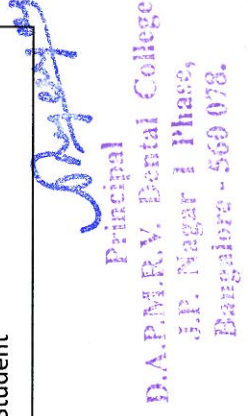 Student
Principal
D.A.P.M.R.V. Dental College
J.P. Nagar I Phase,
Bangalore - 560 078.